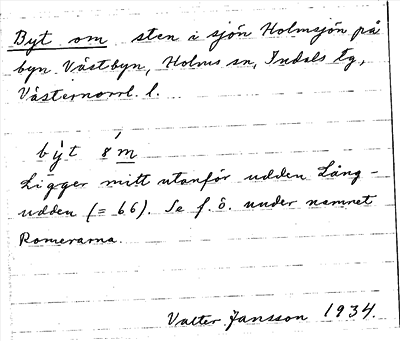 Byt om sten i sjön Holmsjön på
byn Västbyn, Holms sn, Indals tg,
Västernorrl. l.
bỳt 8́m
Ligger mitt utanför udden Lång-
udden (= 66). Se f. ö. under namnet
Romerarna.
Valter Jansson 1934